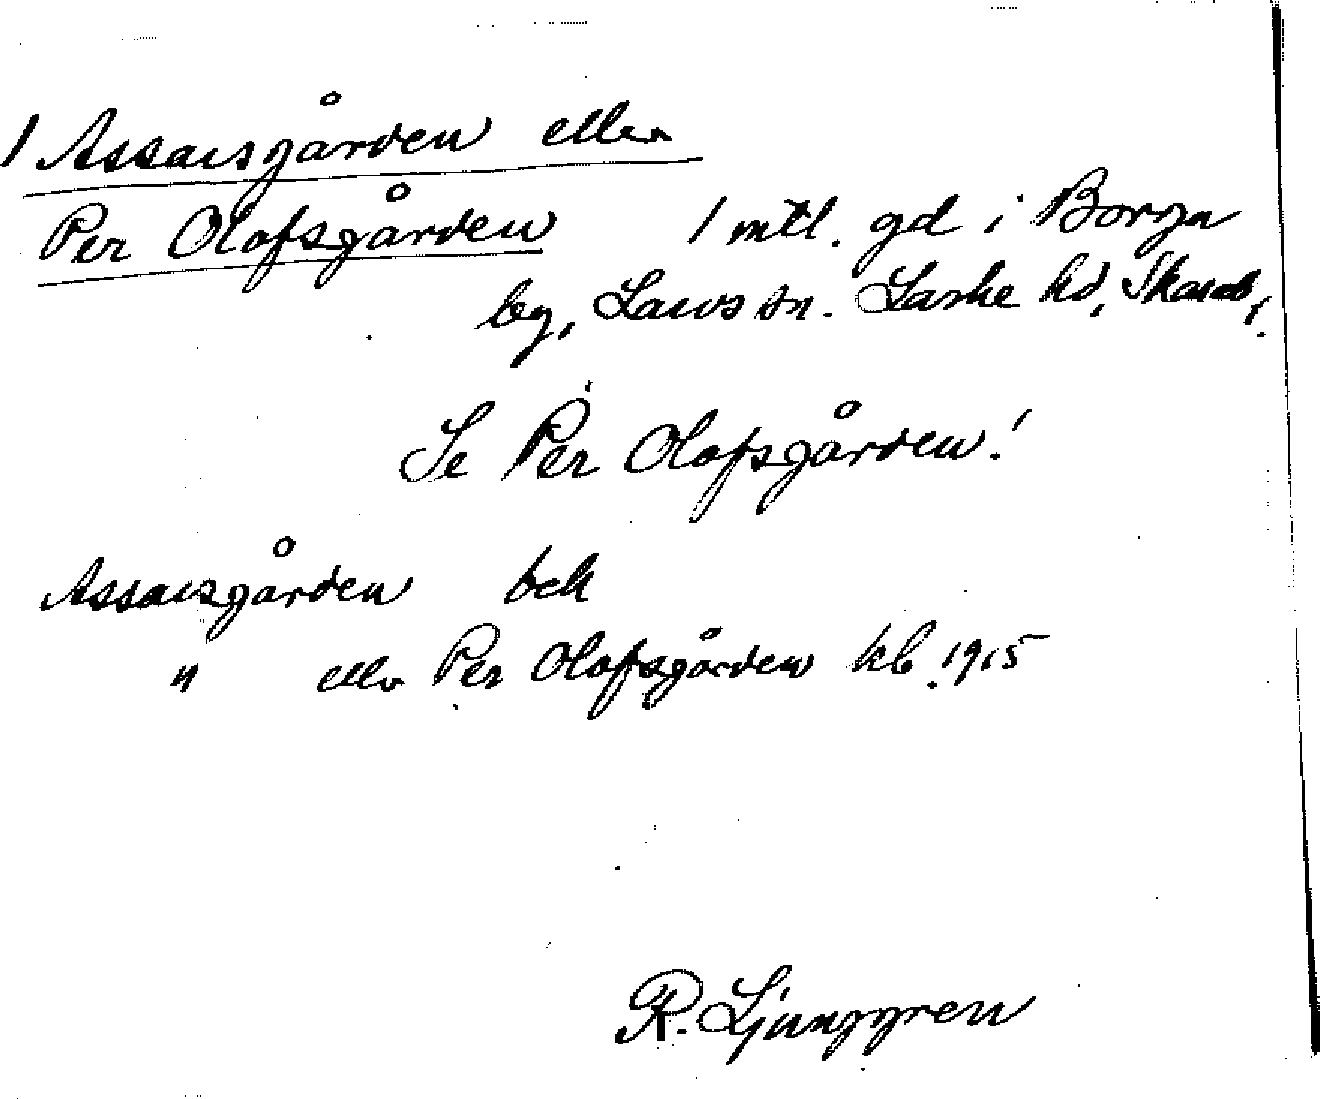 1 Assarsgården eller
Per Olofsgården 1 mtl. gd i Borga
by, Lavs sn. Laske hd, Skarab.
Se Per Olofsgården!
Assarsgården bek
" eller Per Olofsgården kb 1915
R. Ljunggren